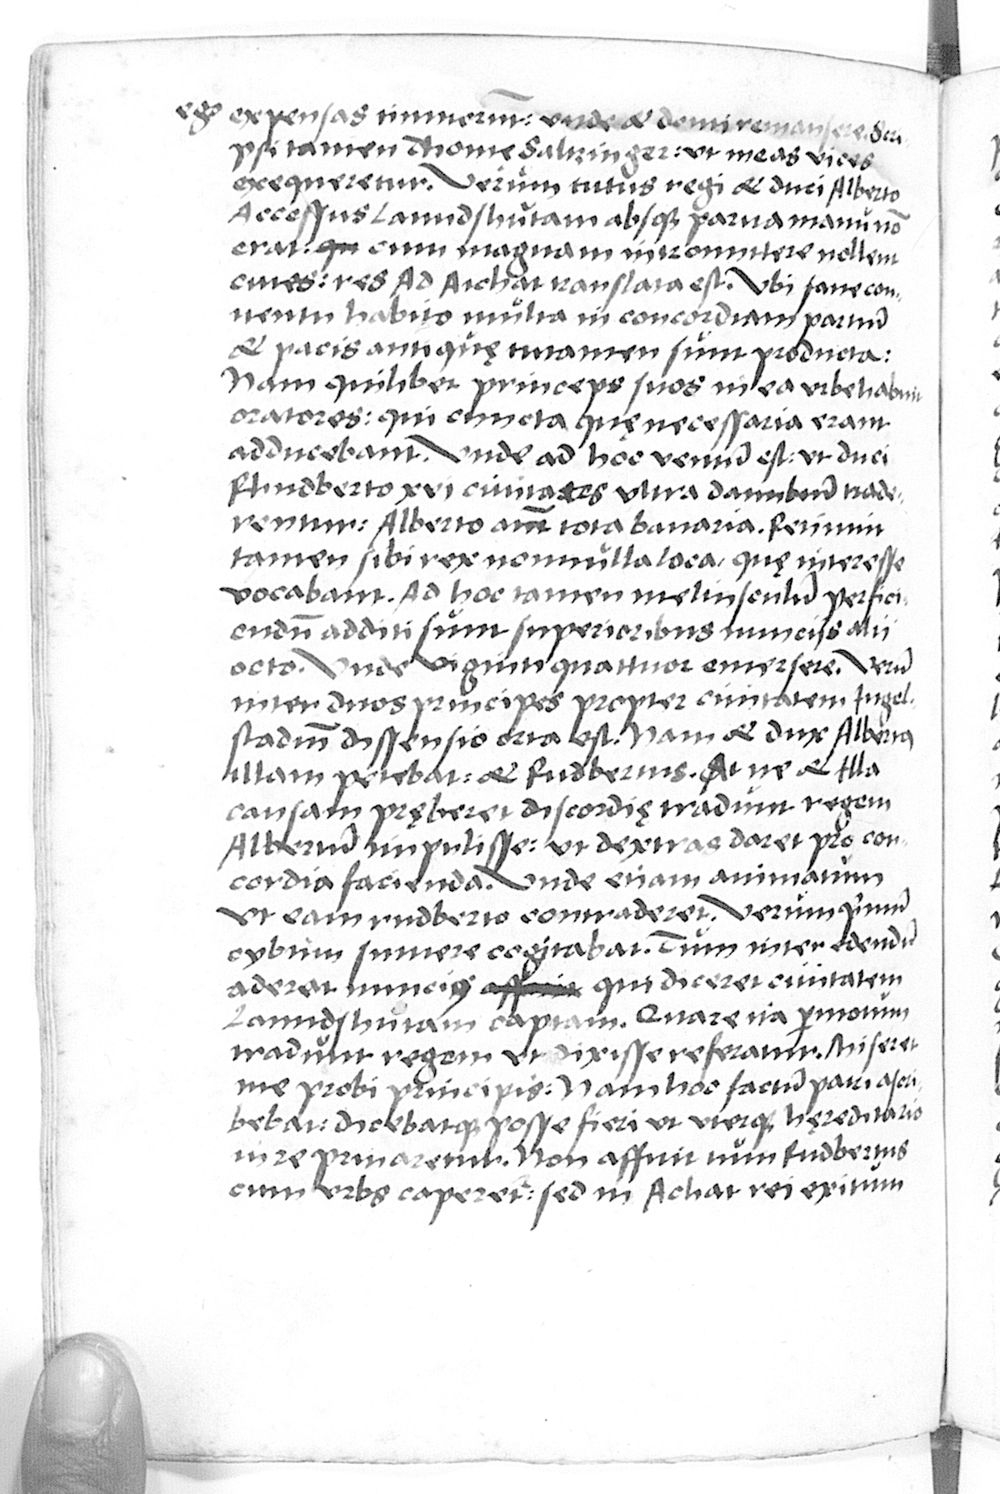 ego expensas timuerim̅: vnde & domi remansere. Scri-
psi tamen Thome Saltzinger: vt meas vices
exequeretur. Verum tutus regi & duci Alberto
Accessus Lanndshutam absq; parua manu no̅
erat: cum magnam intromittere nollent
ciues: res Ad Aichat translata est. Vbi sane con-
uentu habito multa in concordiam partiu̅
& pacis antiquę tutamen sunt producta:
Nam quilibet princeps suos in ea vrbe habuit
oratores: qui cuncta quę necessaria erant
adducebant. Vnde ad hoc ventu̅ est: vt duci
Rudberto xvi ciuitates vltra danubiu̅ trade-
rentur: Alberto aut̅ tota bauaria. Retinuit
tamen sibi rex nonnulla loca, quę interesse
vocabant. Ad hoc tamen meliusculu̅ perfici-
endu̅ additi sunt superioribus nuncijs alii
octo. Vnde viginti quattuor emersere. Veru̅
inter duos principes propter ciuitatem Ingel-
stadiu̅ dissensio orta est. Nam & dux Albertus
illam petebat: & Rudbertus. At ne & Illa
causam pręberet discordię tradunt regem
Albertu̅ impulisse: vt dextras daret pro con-
cordia facienda. Vnde etiam animatum
vt eam rudberto contraderet. Verum primu̅
cybum sumere cogitabat. Tum inter edendu̅
aderat nuncius qui diceret ciuitatem
Lanndshutam captam. Quare ita permotum
tradunt regem vt dixisse referatur. Miseret
me probi principis: Nam hoc factu̅ patri ascri-
bebat: dicebatq; posse fieri vt vterq; hęreditario
iure priuaretur. Non affuit tum Rudbertus
cum vrbs caperet̅: sed in Achat rei exitum